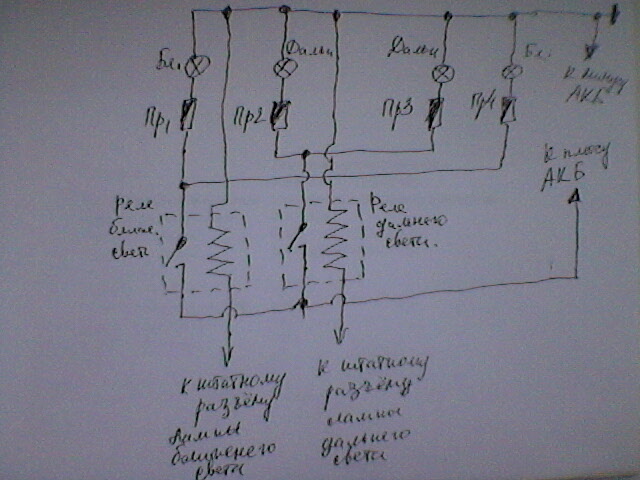 Бл.
Дальн
Дальн
Бл.
К минусу
АКБ
Пр1
Пр2
Пр3
Пр4
К плюсу
АКБ
Реле
ближ.
света
Реле
дальнего
света.
К штатному
разъёму
лампы
ближнего
света
К штатному
разъёму
лампы
дальнего
света